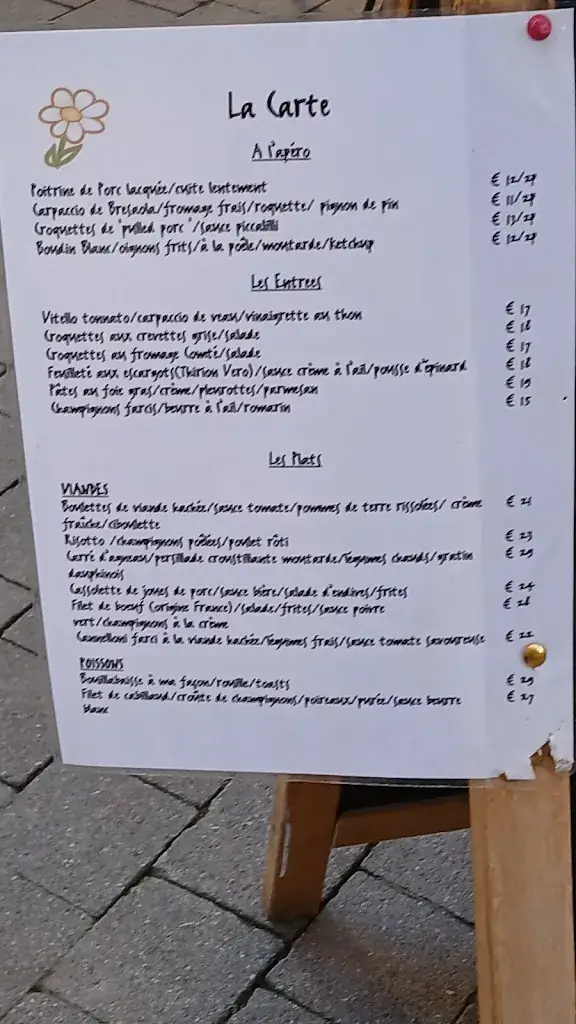 La Carte
A l'apéro
Poitrine de Porc lacquée/cuite lentement € 12/24
Carpaccio de Bresaola/fromage frais/roquette/ pignon de pin € 11/24
Croquettes de 'pulled porc'/sauce piccalilli € 12/24
Boudin Blanc/oignons frits/à la poêle/moutarde/ketchup € 12/24
Les Entrees
Vitello tonnato/carpaccio de veau/vinaigrette au thon € 17
Croquettes aux crevettes grise/salade € 18
Croquettes au fromage Comté/salade € 17
Feuilleté aux escargots(Thirion Vero)/sauce crème à l'ail/pousse d'épinard € 18
Pâtes au foie gras/crème/pleurottes/parmesan € 19
Champignons farcis/beurre à l'ail/romarin € 15
Les Plats
VIANDES
Boulettes de viande hachée/sauce tomate/pommes de terre rissolées/ crème € 21
fraîche/ciboulette
Risotto /champignons poêlées/poulet rôti € 23
Carré d'agneau/persillade croustillante moutarde/légumes chauds/gratin € 29
dauphinois
Cassolette de joues de porc/sauce bière/salade d'endives/frites € 24
Filet de boeuf (origine France)/salade/frites/sauce poivre € 28
vert/champignons à la crème
Cannelloni farci à la viande hachée/légumes frais/sauce tomate savoureuse € 22
POISSONS
Bouillabaisse à ma façon/rouille/toasts € 29
Filet de cabillaud/croûte de champignons/poireaux/purée/sauce beurre € 27
blanc